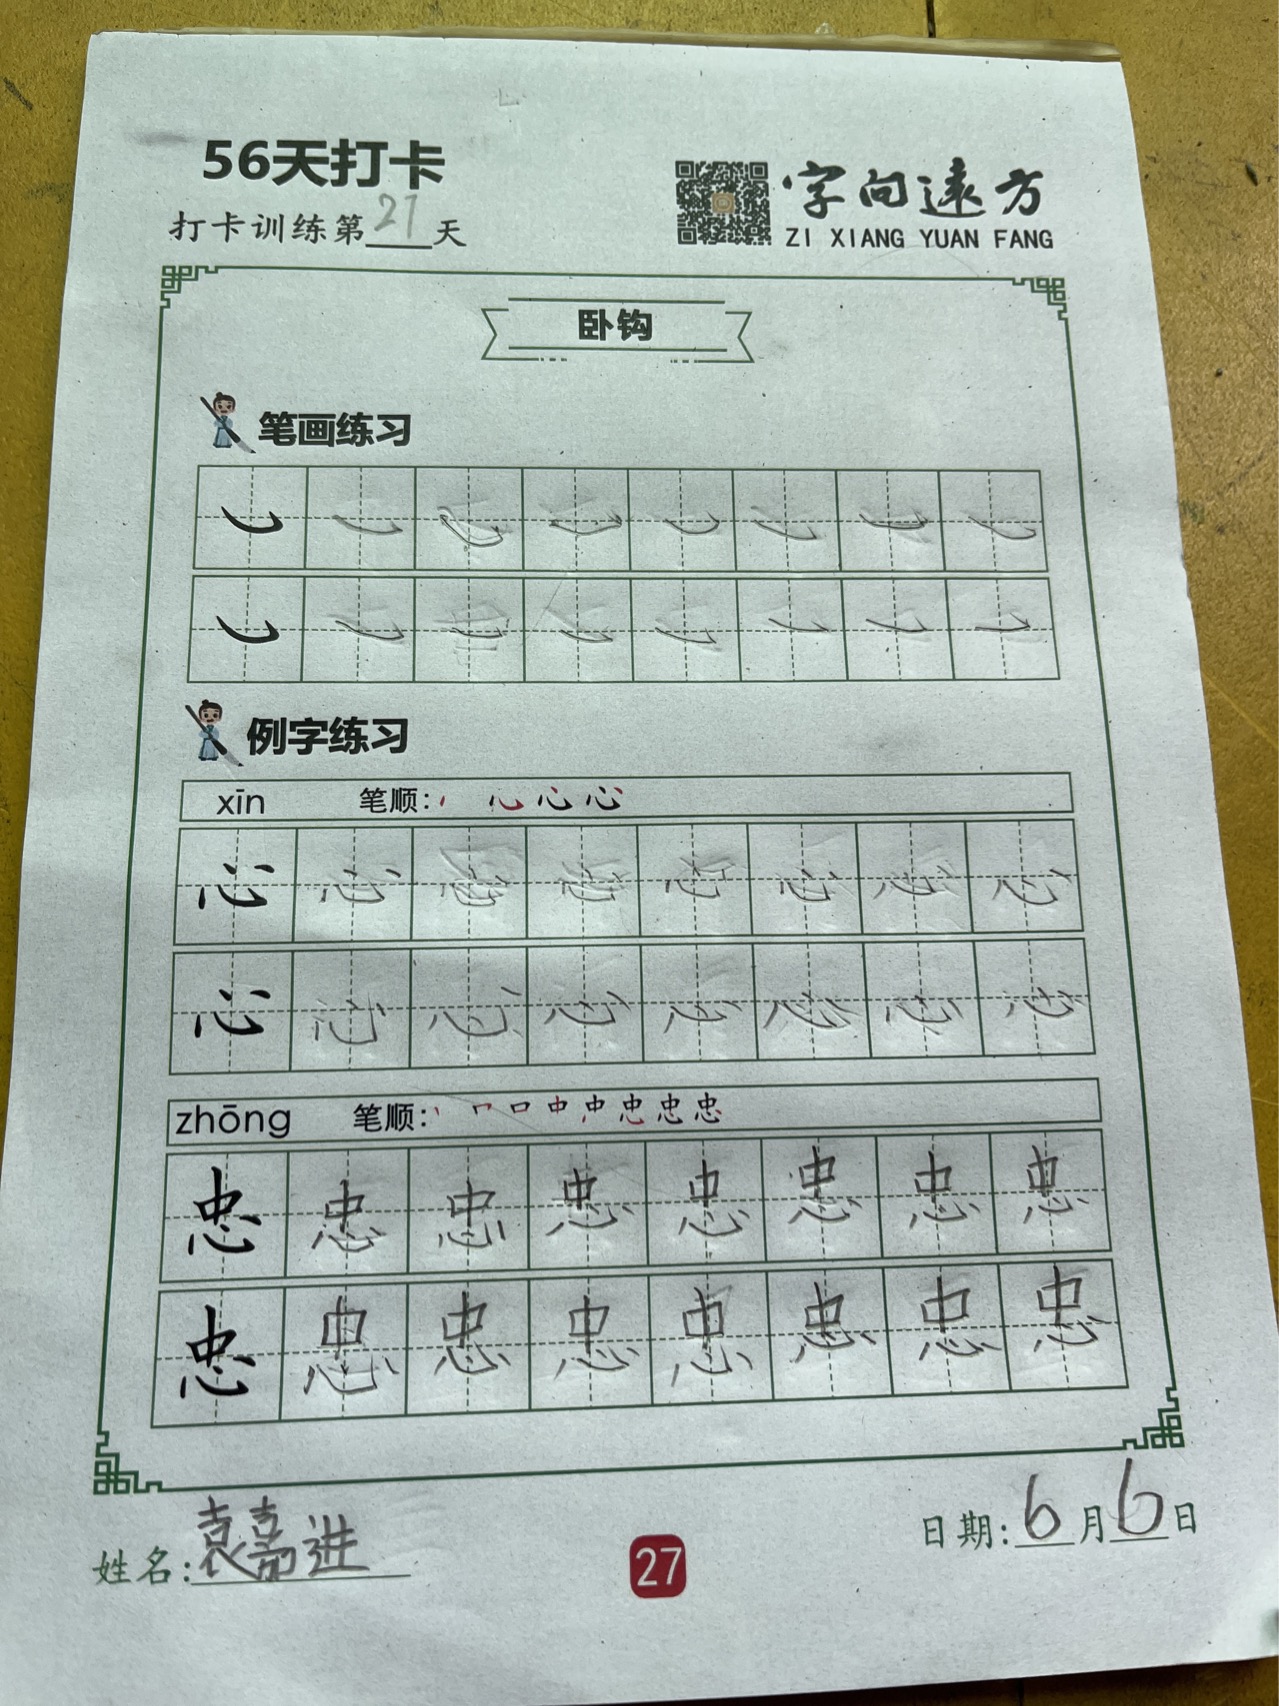 56天打卡
打卡训练第27天
字向远方
ZI XIANG YUAN FANG
卧钩
笔画练习
例字练习
xīn 笔顺: 心 心 心
心 心 心 心 心 心 心 心
心 心 心 心 心 心 心 心
zhōng 笔顺: 丨 口 口 中 中 忠 忠 忠
忠 忠 忠 忠 忠 忠 忠 忠
忠 忠 忠 忠 忠 忠 忠 忠
姓名:袁嘉进
27
日期:6月6日